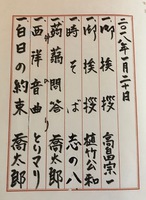 二〇一八年一月二十日
一、御挨拶 高畠宗一
一、御挨拶 植竹公和
一、時そば 志の八
一、蒟蒻問答 喬太郎
仲入り
一、西洋音曲 とりマリ
一、白日の約束 喬太郎